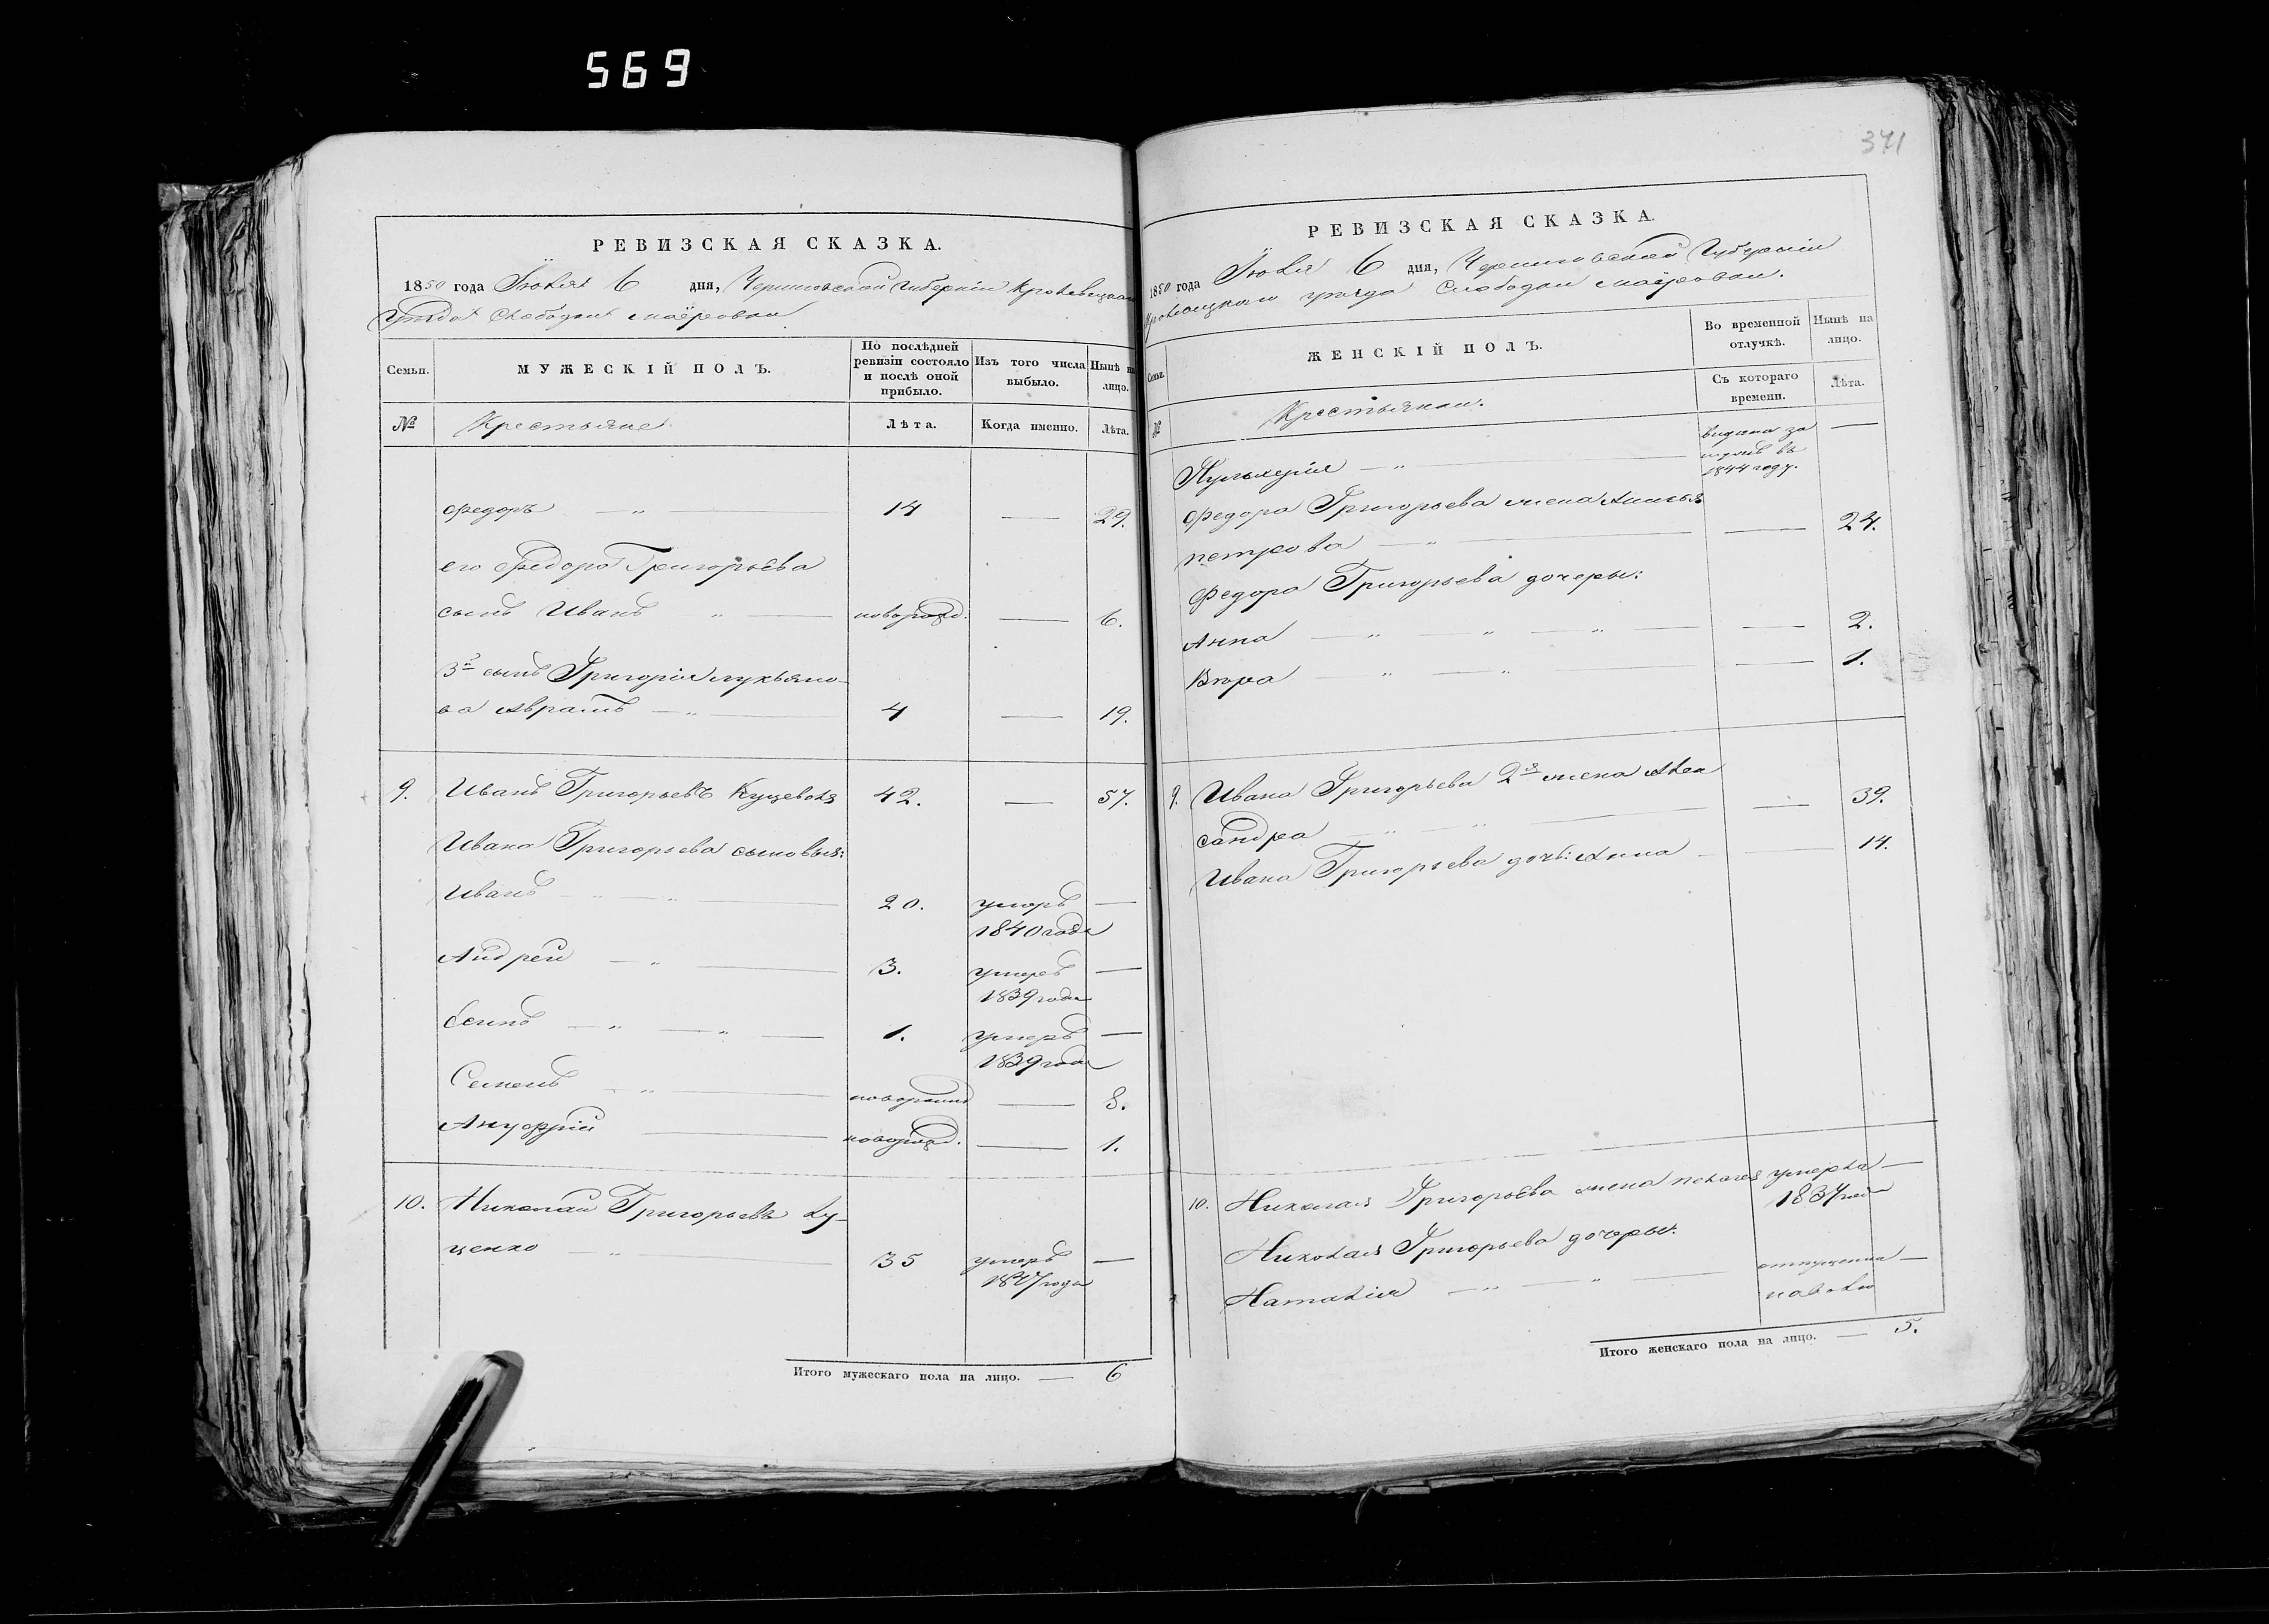 569
371
РЕВИЗСКАЯ СКАЗКА.
1850 года Іюля 6 дня, Черниговской Губерніи Кролевецкаго
Уѣзда Слободки
Семьи.
МУЖЕСКІЙ ПОЛЪ.
По послѣдней ревизіи состояло и послѣ оной прибыло.
Изъ того числа выбыло.
Нынѣ на лицо.
№
Крестьяне
Лѣта.
Когда именно.
Лѣта.
Федоръ — „ — 14 — 29.
его Федора Григорьева
сынъ Иванъ „ — новорожд. — 6.
3й сынъ Григорія Лукьяно-
ва Аврамъ — „ — 4 — 19.
9. Иванъ Григорьевъ 42. — 57.
Ивана Григорьева сыновья:
Иванъ — „ — „ — 20. умеръ —
1840 года
Андрей — „ — 3. умеръ —
1839 года
— „ — „ — 1. умеръ —
1839 года
Семенъ „ — новорожд — 8.
Ануфрій — новорожд. — 1.
10. Николай Григорьевъ Ку-
ценко — „ — 35 умеръ —
1847 года
Итого мужескаго пола на лицо. — 6
РЕВИЗСКАЯ СКАЗКА.
1850 года Іюля 6 дня, Черниговской Губерніи
Кролевецкаго уѣзда Слободки
Семьи.
ЖЕНСКІЙ ПОЛЪ.
Во временной отлучкѣ.
Нынѣ на лицо.
№
Крестьянки.
Съ котораго времени.
Лѣта.
Пульхерія — „ — выдана за —
мужъ въ
1844 году.
Федора Григорьева жена
петрова — „ — — 24.
Федора Григорьева дочеры:
Анна — „ — „ — „ — 2.
Вѣра „ — „ — — 1.
9. Ивана Григорьева 2я жена Алек
сандра — „ — „ — — 39.
Ивана Григорьева дочь: Анна — — 14.
10. Николая Григорьева жена умерла —
1837 года
Николая Григорьева дочеры:
Наталія — „ — „ — отпущенна —
наволю
Итого женскаго пола на лицо. — 5.